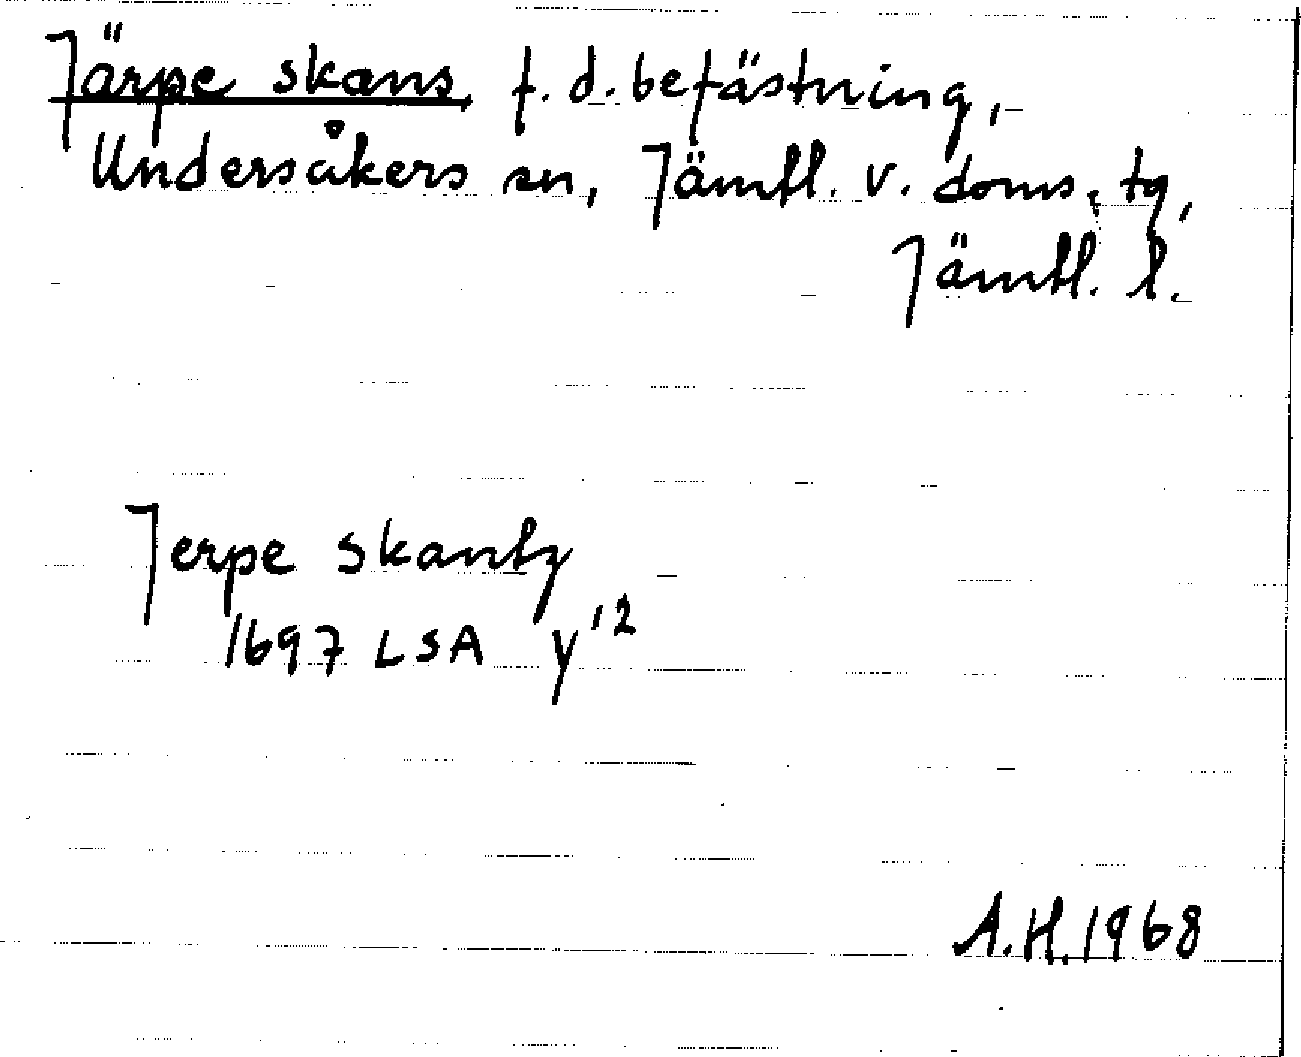 Järpe skans, f. d. befästning,
Undersåkers sn, Jämtl. v. doms. tg,
Jämtl. l.
Jerpe Skantz
1697 LSA y'2
A.H. 1968